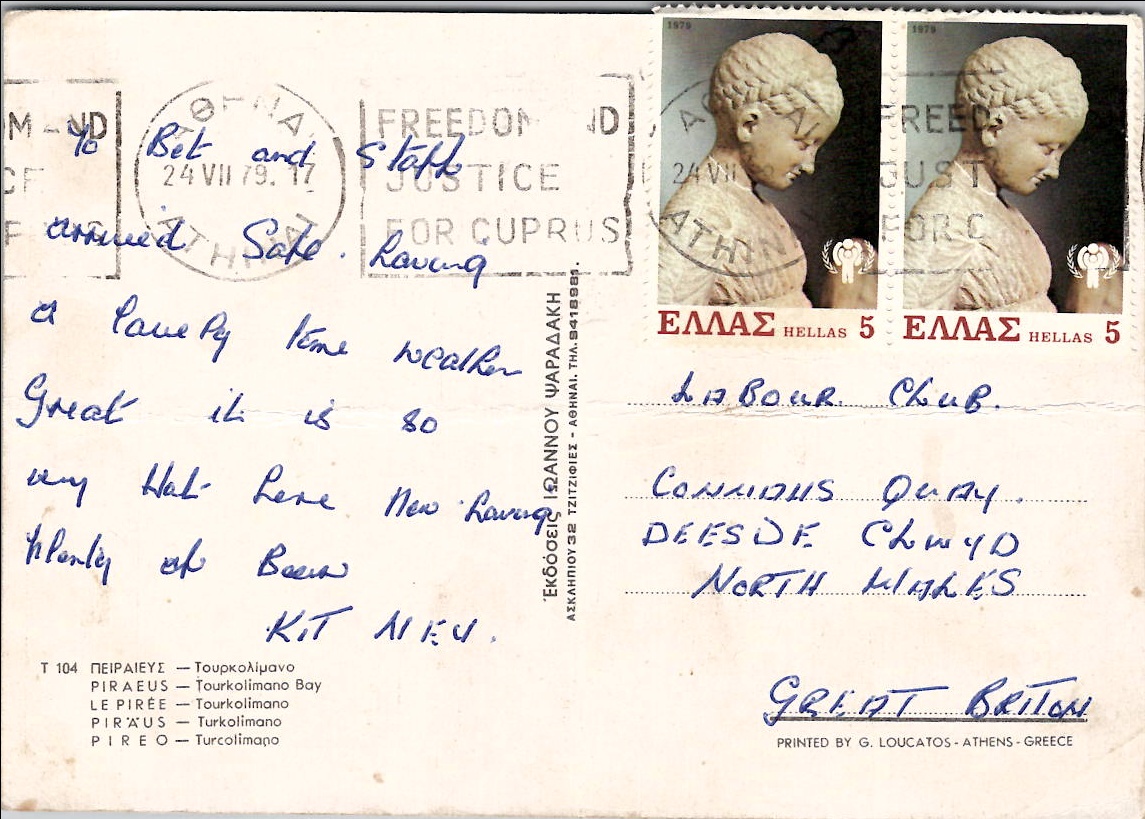 To Bet and Staff
arrived Safe. having
a lovely time weather
Great it is so
very Hot here New having
Plenty of Beers
KIT NEY.
T 104 ΠΕΙΡΑΙΕΥΣ — Τουρκολίμανο
PIRAEUS — Tourkolimano Bay
LE PIRÉE — Tourkolimano
PIRÄUS — Turkolimano
PIREO — Turcolimano
Ἐκδόσεις ΙΩΑΝΝΟΥ ΨΑΡΑΔΑΚΗ
ΑΣΚΛΗΠΙΟΥ 32 ΤΖΙΤΖΙΦΙΕΣ - ΑΘΗΝΑΙ. ΤΗΛ. 9418981.
24 VII 79. 17
FREEDOM ND
JUSTICE
FOR CUPRUS
1979
ΕΛΛΑΣ HELLAS 5
1979
ΕΛΛΑΣ HELLAS 5
24 VII
FREED
JUST
FOR C
LABOUR CLUB.
CONNAHS QUAY.
DEESIDE CLWYD
NORTH WALES
GREAT BRITON
PRINTED BY G. LOUCATOS - ATHENS - GREECE